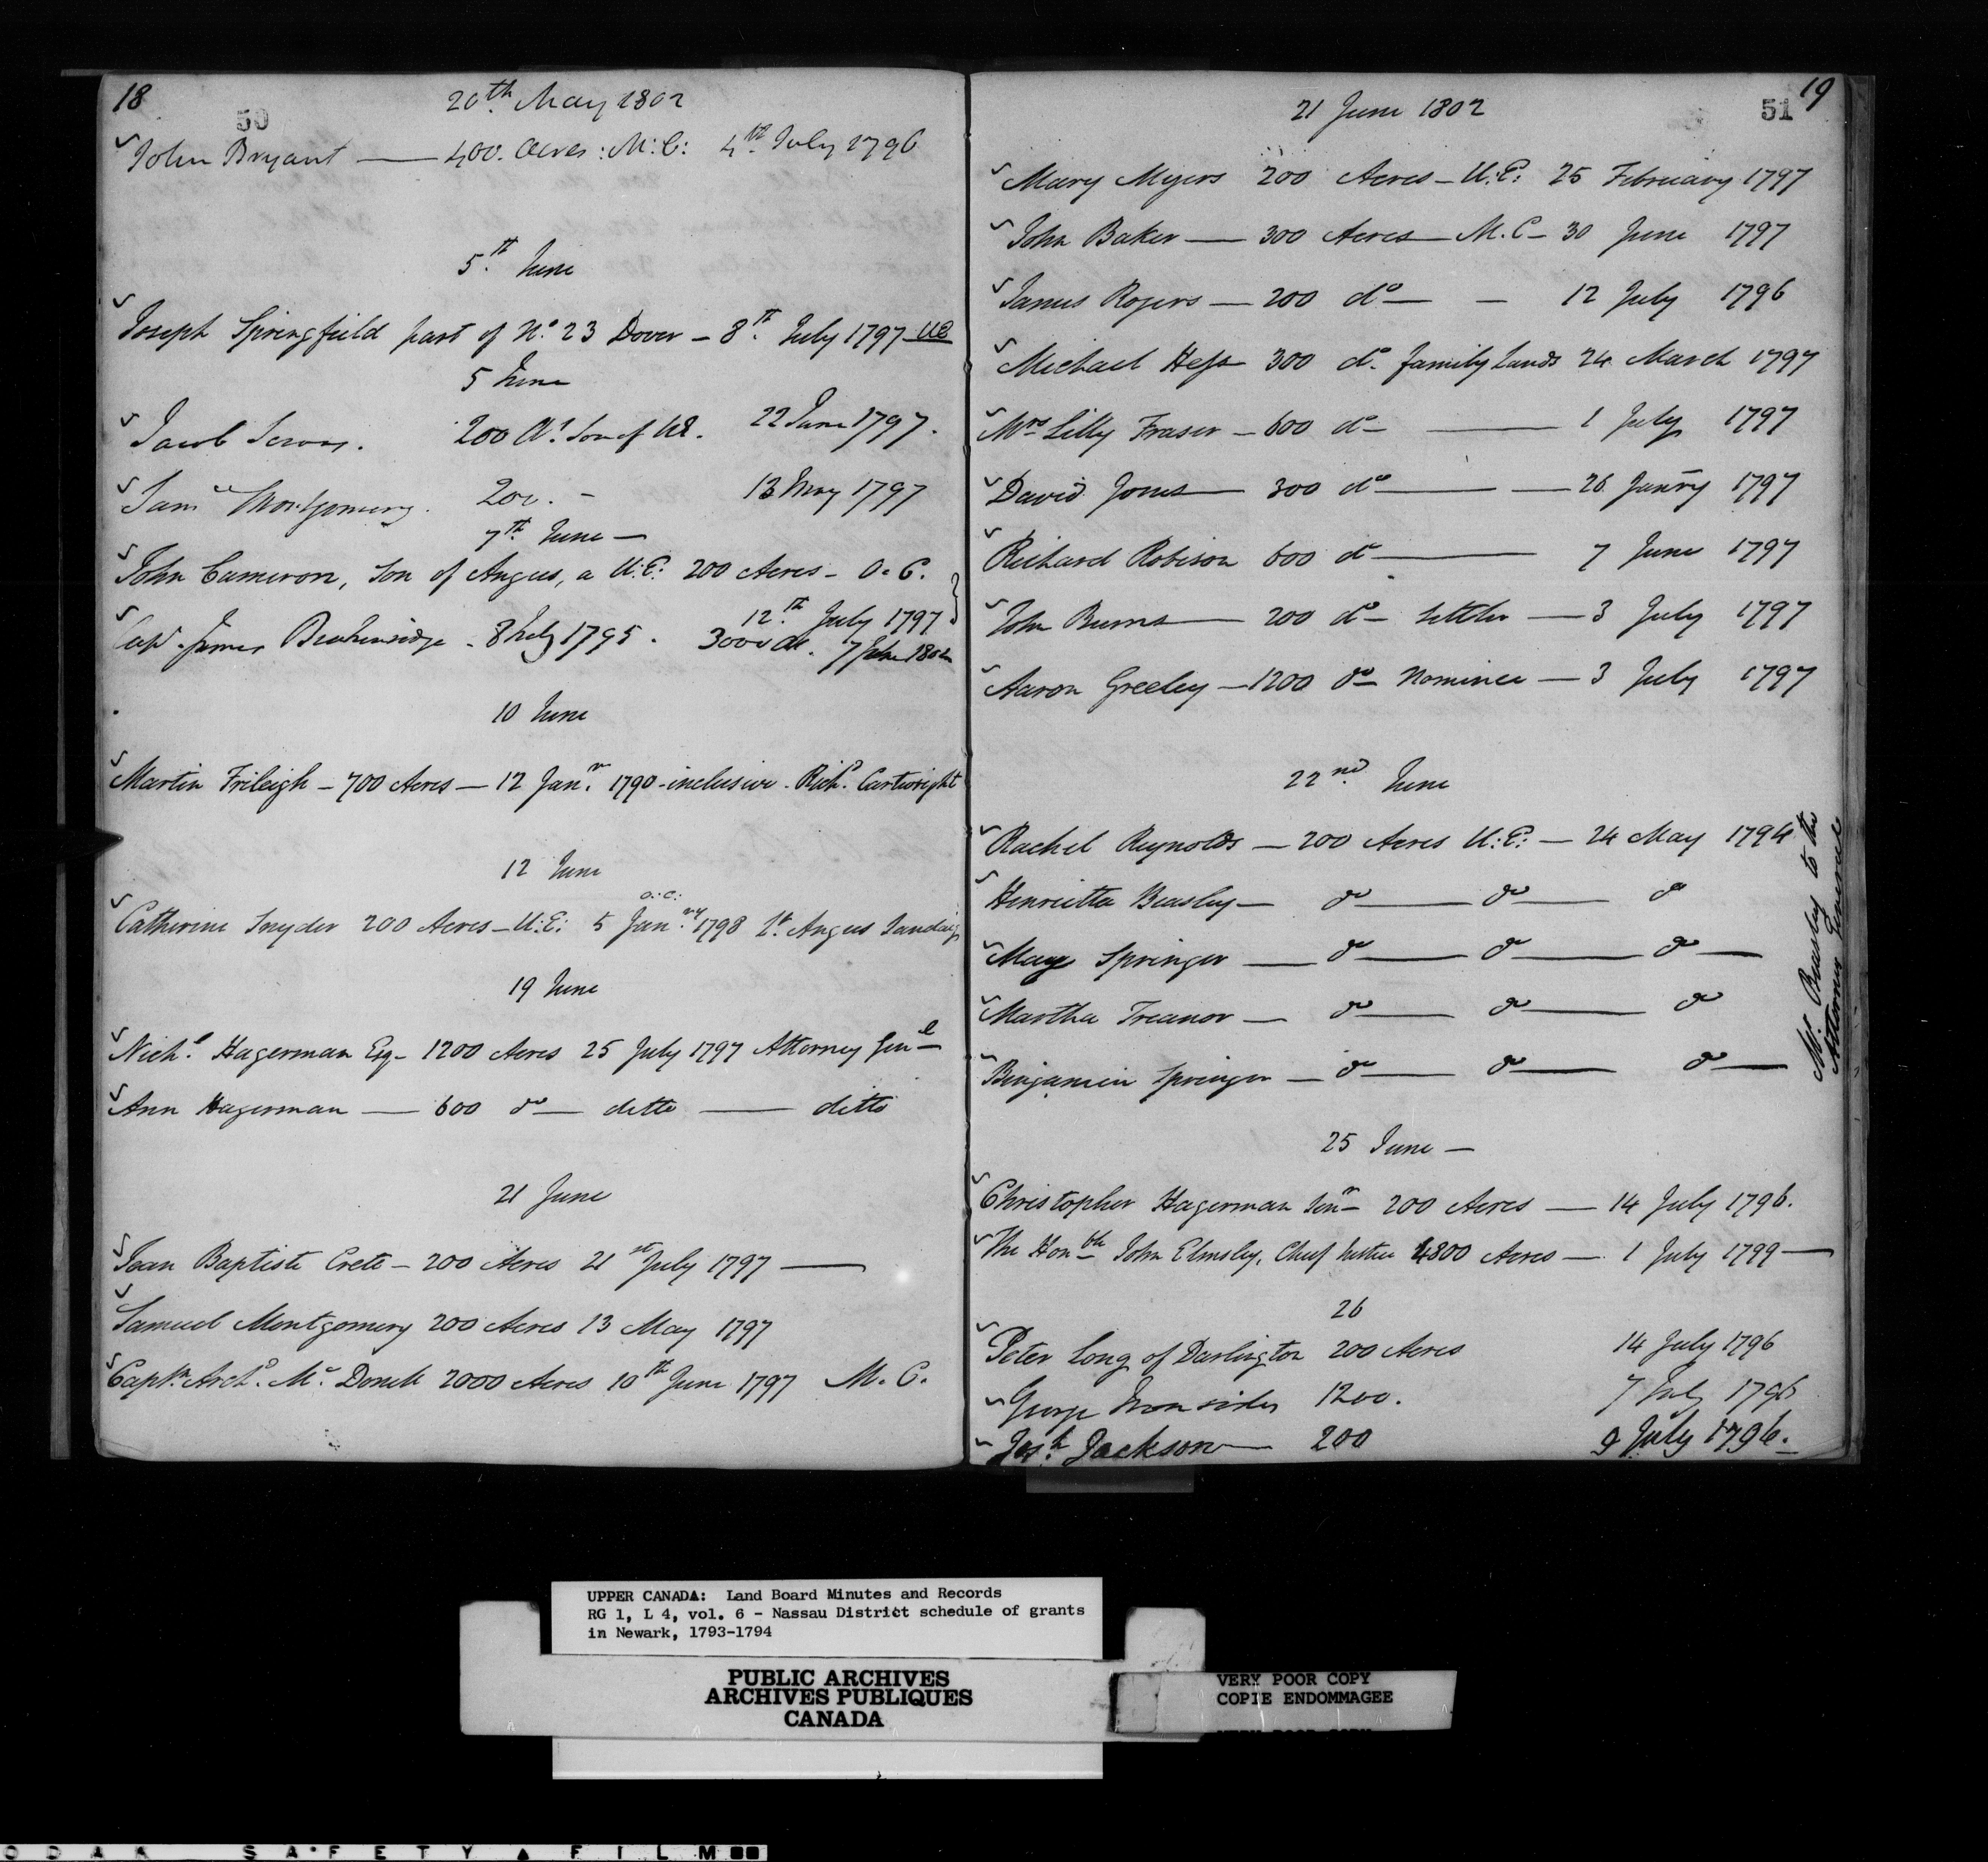 18
50
20th May 1802
John Bryant — 400. Acres : M:C: 4th July 1796
5th June
Joseph Springfield part of No. 23 Dover – 8th July 1797 UE
5 June
Jacob 200 As. Son of UE. 22 June 1797.
Saml Montgomery. 200. – 13 May 1797
7th June —
John Cameron, Son of Angus, a U:E: 200 Acres – O. C.
12th July 1797
Capt. James Breakenridge – 8 July 1795. 3000 As. 7 June 1802
10 June
Martin Frileigh – 700 Acres – 12 Janr. 1790 – inclusive – Richd. Cartwright
12 June
O:C:
Catherine Snyder 200 Acres – U:E: 5 Janry. 1798 Angus
19 June
Nichs. Hagerman Esq – 1200 Acres 25 July 1797 Attorney Genl
Ann Hagerman — 600 do — ditto — ditto
21 June
Jean Baptiste Crete – 200 Acres 21st July 1797 —
Samuel Montgomery 200 Acres 13 May 1797
Captn. Archd. Mc. Donell 2000 Acres 10th June 1797 M. C.
19
51
21 June 1802
Mary Myers 200 Acres – U:E: 25 February 1797
John Baker — 300 Acres — M. C – 30 June 1797
James Rogers — 200 do — – 12 July 1796
Michael Hess 300 do. family Lands 24 March 1797
Mrs Lilly Fraser – 600 do – — 1 July 1797
David Jones — 300 do — — 26 Janry 1797
Richard Robison 600 do — 7 June 1797
John Burns — 200 do – Settler — 3 July 1797
Aaron Greeley – 1200 do – Nominee — 3 July 1797
22nd June
Rachel Reynolds — 200 Acres U:E: — 24 May 1794
Henrietta Beasley — do — do — do
Mary Springer — do — do — do —
Martha Treanor — do — do — do
Benjamin Springer — do — do — do —
Mr. Beasley to the
Attorney General
25 June —
Christopher Hagerman Senr – 200 Acres — 14 July 1796.
The Honble John Elmsley, Chief Justice 4800 Acres — 1 July 1799 —
26
Peter Long of Darlington 200 Acres 14 July 1796
George Ironsides 1200. 7 July 1796
Josh. Jackson — 200 9 July 1796.
UPPER CANADA: Land Board Minutes and Records
RG 1, L 4, vol. 6 - Nassau District schedule of grants
in Newark, 1793-1794
PUBLIC ARCHIVES
ARCHIVES PUBLIQUES
CANADA
VERY POOR COPY
COPIE ENDOMMAGEE
VERY POOR COPY
ODAK SAFETY FILM